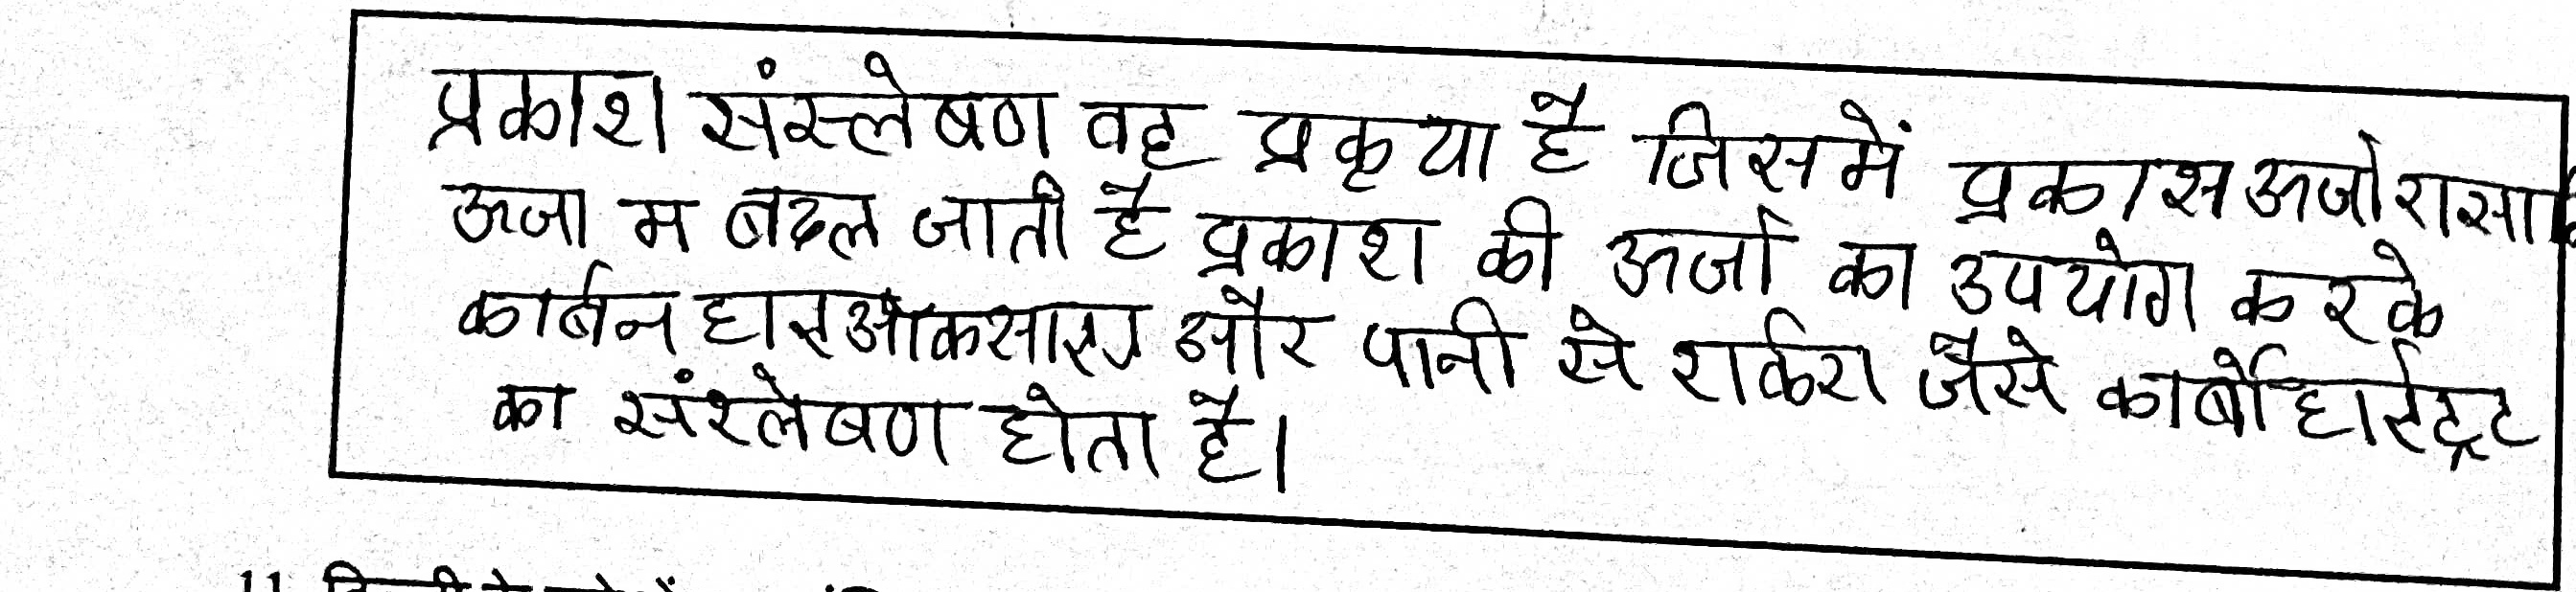 प्रकाश संस्लेषण वह प्रकृया है जिसमें प्रकास ऊर्जा रासा
ऊजा म बदल जाती है प्रकाश की ऊर्जा का उपयोग करके
कार्बन हाइआकसाइड और पानी से शर्करा जैसे कार्बोहाईट्रट
का संश्लेषण होता है।
11